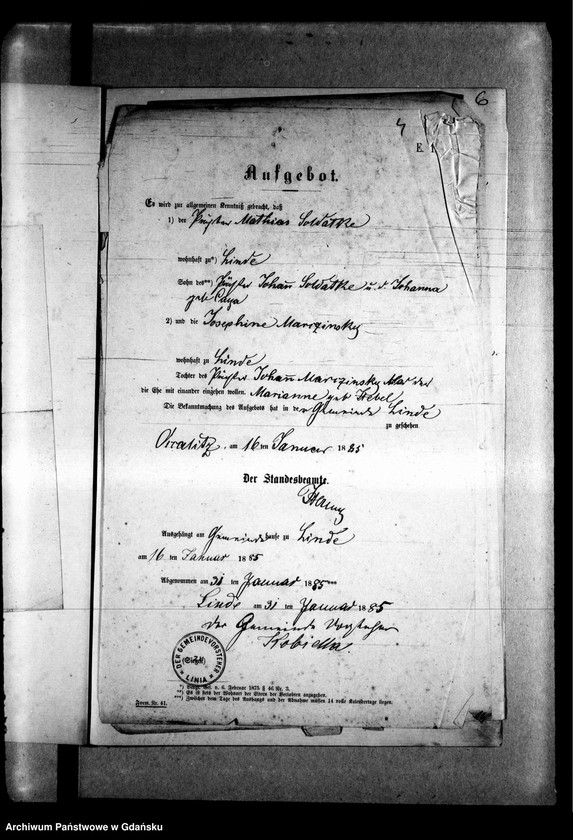 6
4
E. 1
Aufgebot.
Es wird zur allgemeinen Kenntniß gebracht, daß
1) der Pächter Mathias Soldatke
wohnhaft zu*) Linde
Sohn des**) Pächter Johann Soldatke u. d. Johanna
geb.
2) und die Josephine Marszinsky
wohnhaft zu Linde
Tochter des Pächter Johann Marszinsky
die Ehe mit einander eingehen wollen. Marianne geb
Die Bekanntmachung des Aufgebots hat in der Gemeinde Linde
zu geschehen
am 16 ten Januar 1885
Der Standesbeamte.
Ausgehängt am Gemeindehause zu Linde
am 16 ten Januar 1885
Abgenommen am 31 ten Januar 1885***
Linde am 31 ten Januar 1885
Der Gemeinde Vorsteher
Kobiella
DER GEMEINDEVORSTEHER
(Siegel)
LINIA
*) Vergl. Ges. v. 6. Februar 1875 § 46 Nr. 3.
**) Es ist der Wohnort der Eltern der Verlobten anzugeben.
***) Zwischen dem Tage des Aushangs und der Abnahme müssen 14 volle Kalendertage liegen.
Form. Nr. 41.
Archiwum Państwowe w Gdańsku